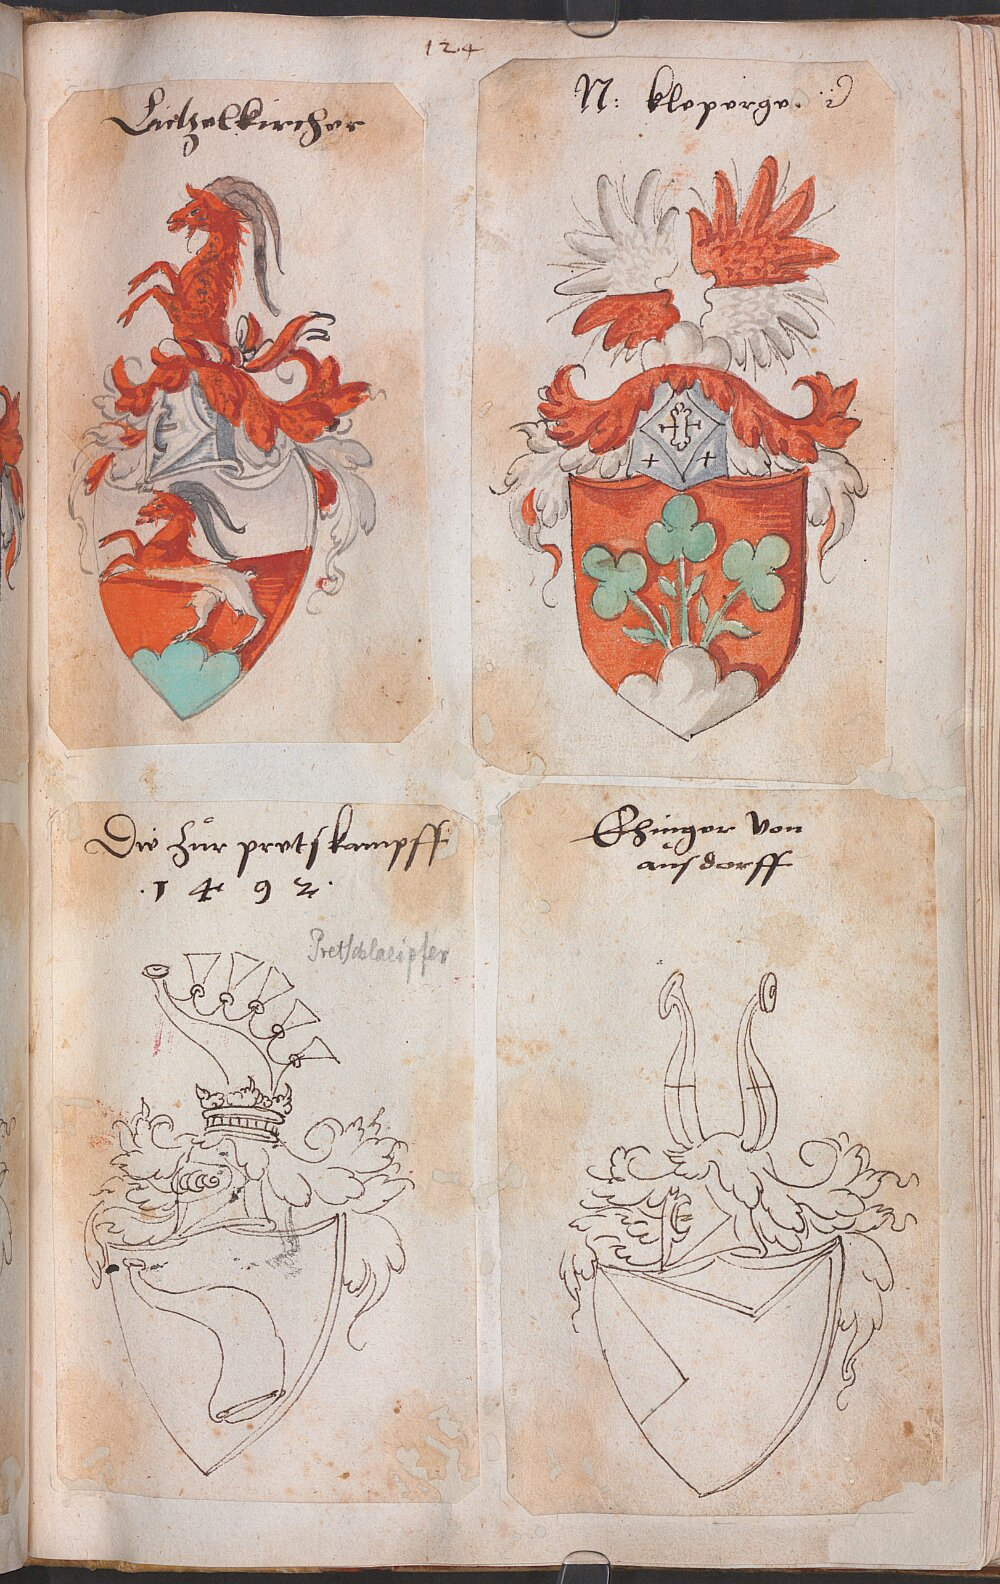 124
Lietzelkircher
N: kleperge. D
Die Zůr pretskampff
.1 4 9 2.
Pretschlaeipfer
Ehinger von
aůsdorff